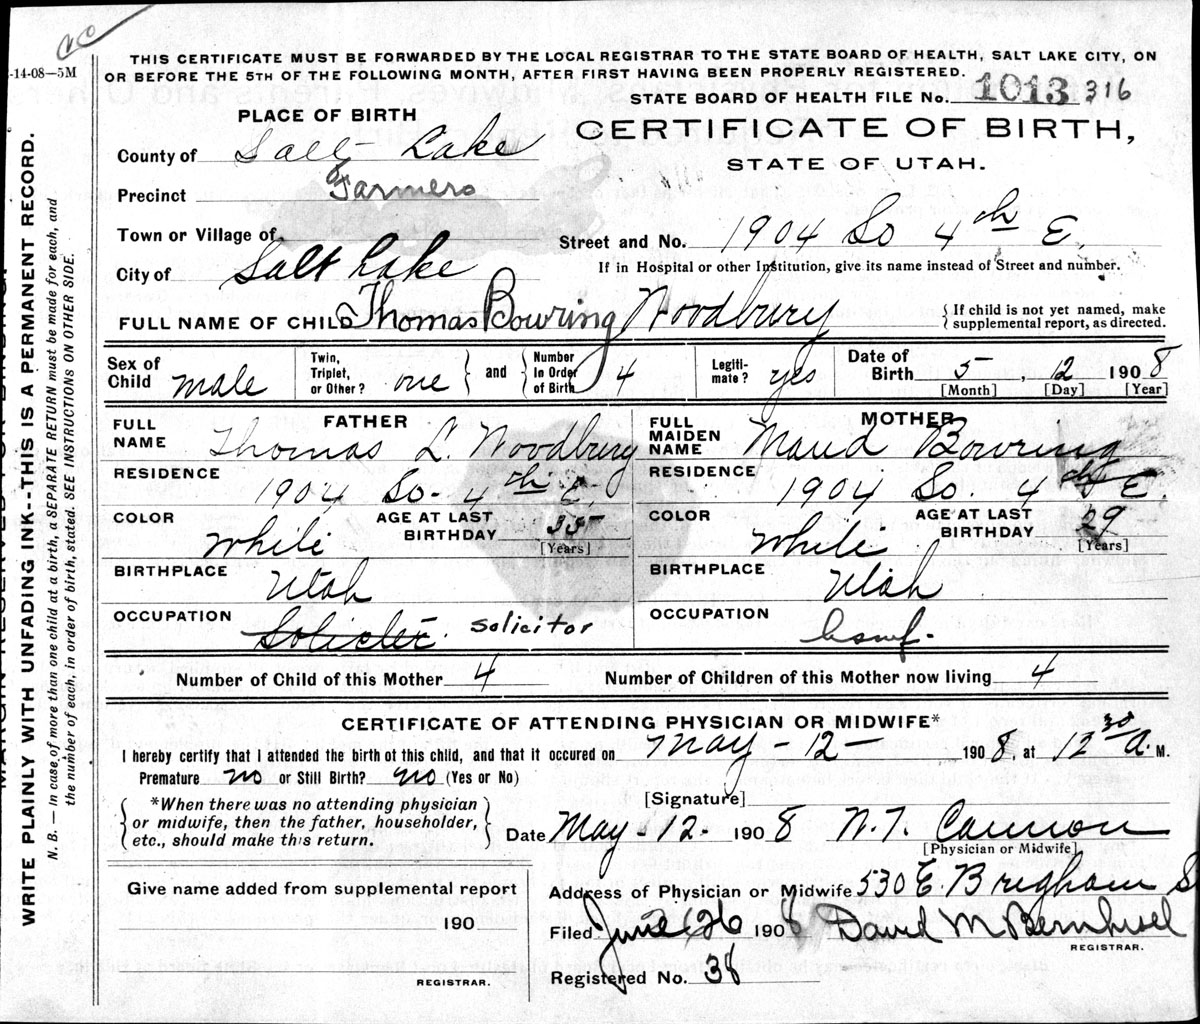 -14-08—5M
THIS CERTIFICATE MUST BE FORWARDED BY THE LOCAL REGISTRAR TO THE STATE BOARD OF HEALTH, SALT LAKE CITY, ON
OR BEFORE THE 5TH OF THE FOLLOWING MONTH, AFTER FIRST HAVING BEEN PROPERLY REGISTERED.
STATE BOARD OF HEALTH FILE No. 1013 316
PLACE OF BIRTH
CERTIFICATE OF BIRTH,
STATE OF UTAH.
County of Salt Lake
Precinct Farmers
Town or Village of
Street and No. 1904 So 4th E.
City of Salt Lake
If in Hospital or other Institution, give its name instead of Street and number.
FULL NAME OF CHILD Thomas Bowring Woodbury
{ If child is not yet named, make
supplemental report, as directed.
Sex of Child male
Twin, Triplet, or Other? one } and { Number In Order of Birth 4
Legiti-mate? yes
Date of Birth 5, 12 1908
[Month] [Day] [Year]
FATHER
FULL NAME Thomas L. Woodbury
RESIDENCE 1904 So. 4th E.
COLOR White AGE AT LAST BIRTHDAY 35
[Years]
BIRTHPLACE Utah
OCCUPATION Soliciter solicitor
MOTHER
FULL MAIDEN NAME Maud Bowring
RESIDENCE 1904 So. 4th E.
COLOR White AGE AT LAST BIRTHDAY 29
[Years]
BIRTHPLACE Utah
OCCUPATION hswf.
Number of Child of this Mother 4
Number of Children of this Mother now living 4
CERTIFICATE OF ATTENDING PHYSICIAN OR MIDWIFE*
I hereby certify that I attended the birth of this child, and that it occured on May - 12 - 1908, at 12 30 A. M.
Premature no or Still Birth? no (Yes or No)
*When there was no attending physician
or midwife, then the father, householder,
etc., should make this return.
[Signature]
Date May - 12 - 1908 N. T. Cannon
[Physician or Midwife]
Give name added from supplemental report
190
REGISTRAR.
Address of Physician or Midwife 530 E. Brigham S
Filed June 26 1908 David M Bernhisel
REGISTRAR.
Registered No. 38
WRITE PLAINLY WITH UNFADING INK--THIS IS A PERMANENT RECORD.
N. B. — In case of more than one child at a birth, a SEPARATE RETURN must be made for each, and
the number of each, in order of birth, stated. SEE INSTRUCTIONS ON OTHER SIDE.